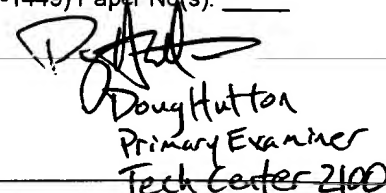 -1449) Paper No(s). ____
Doug Hutton
Primary Examiner
Tech Center 2100